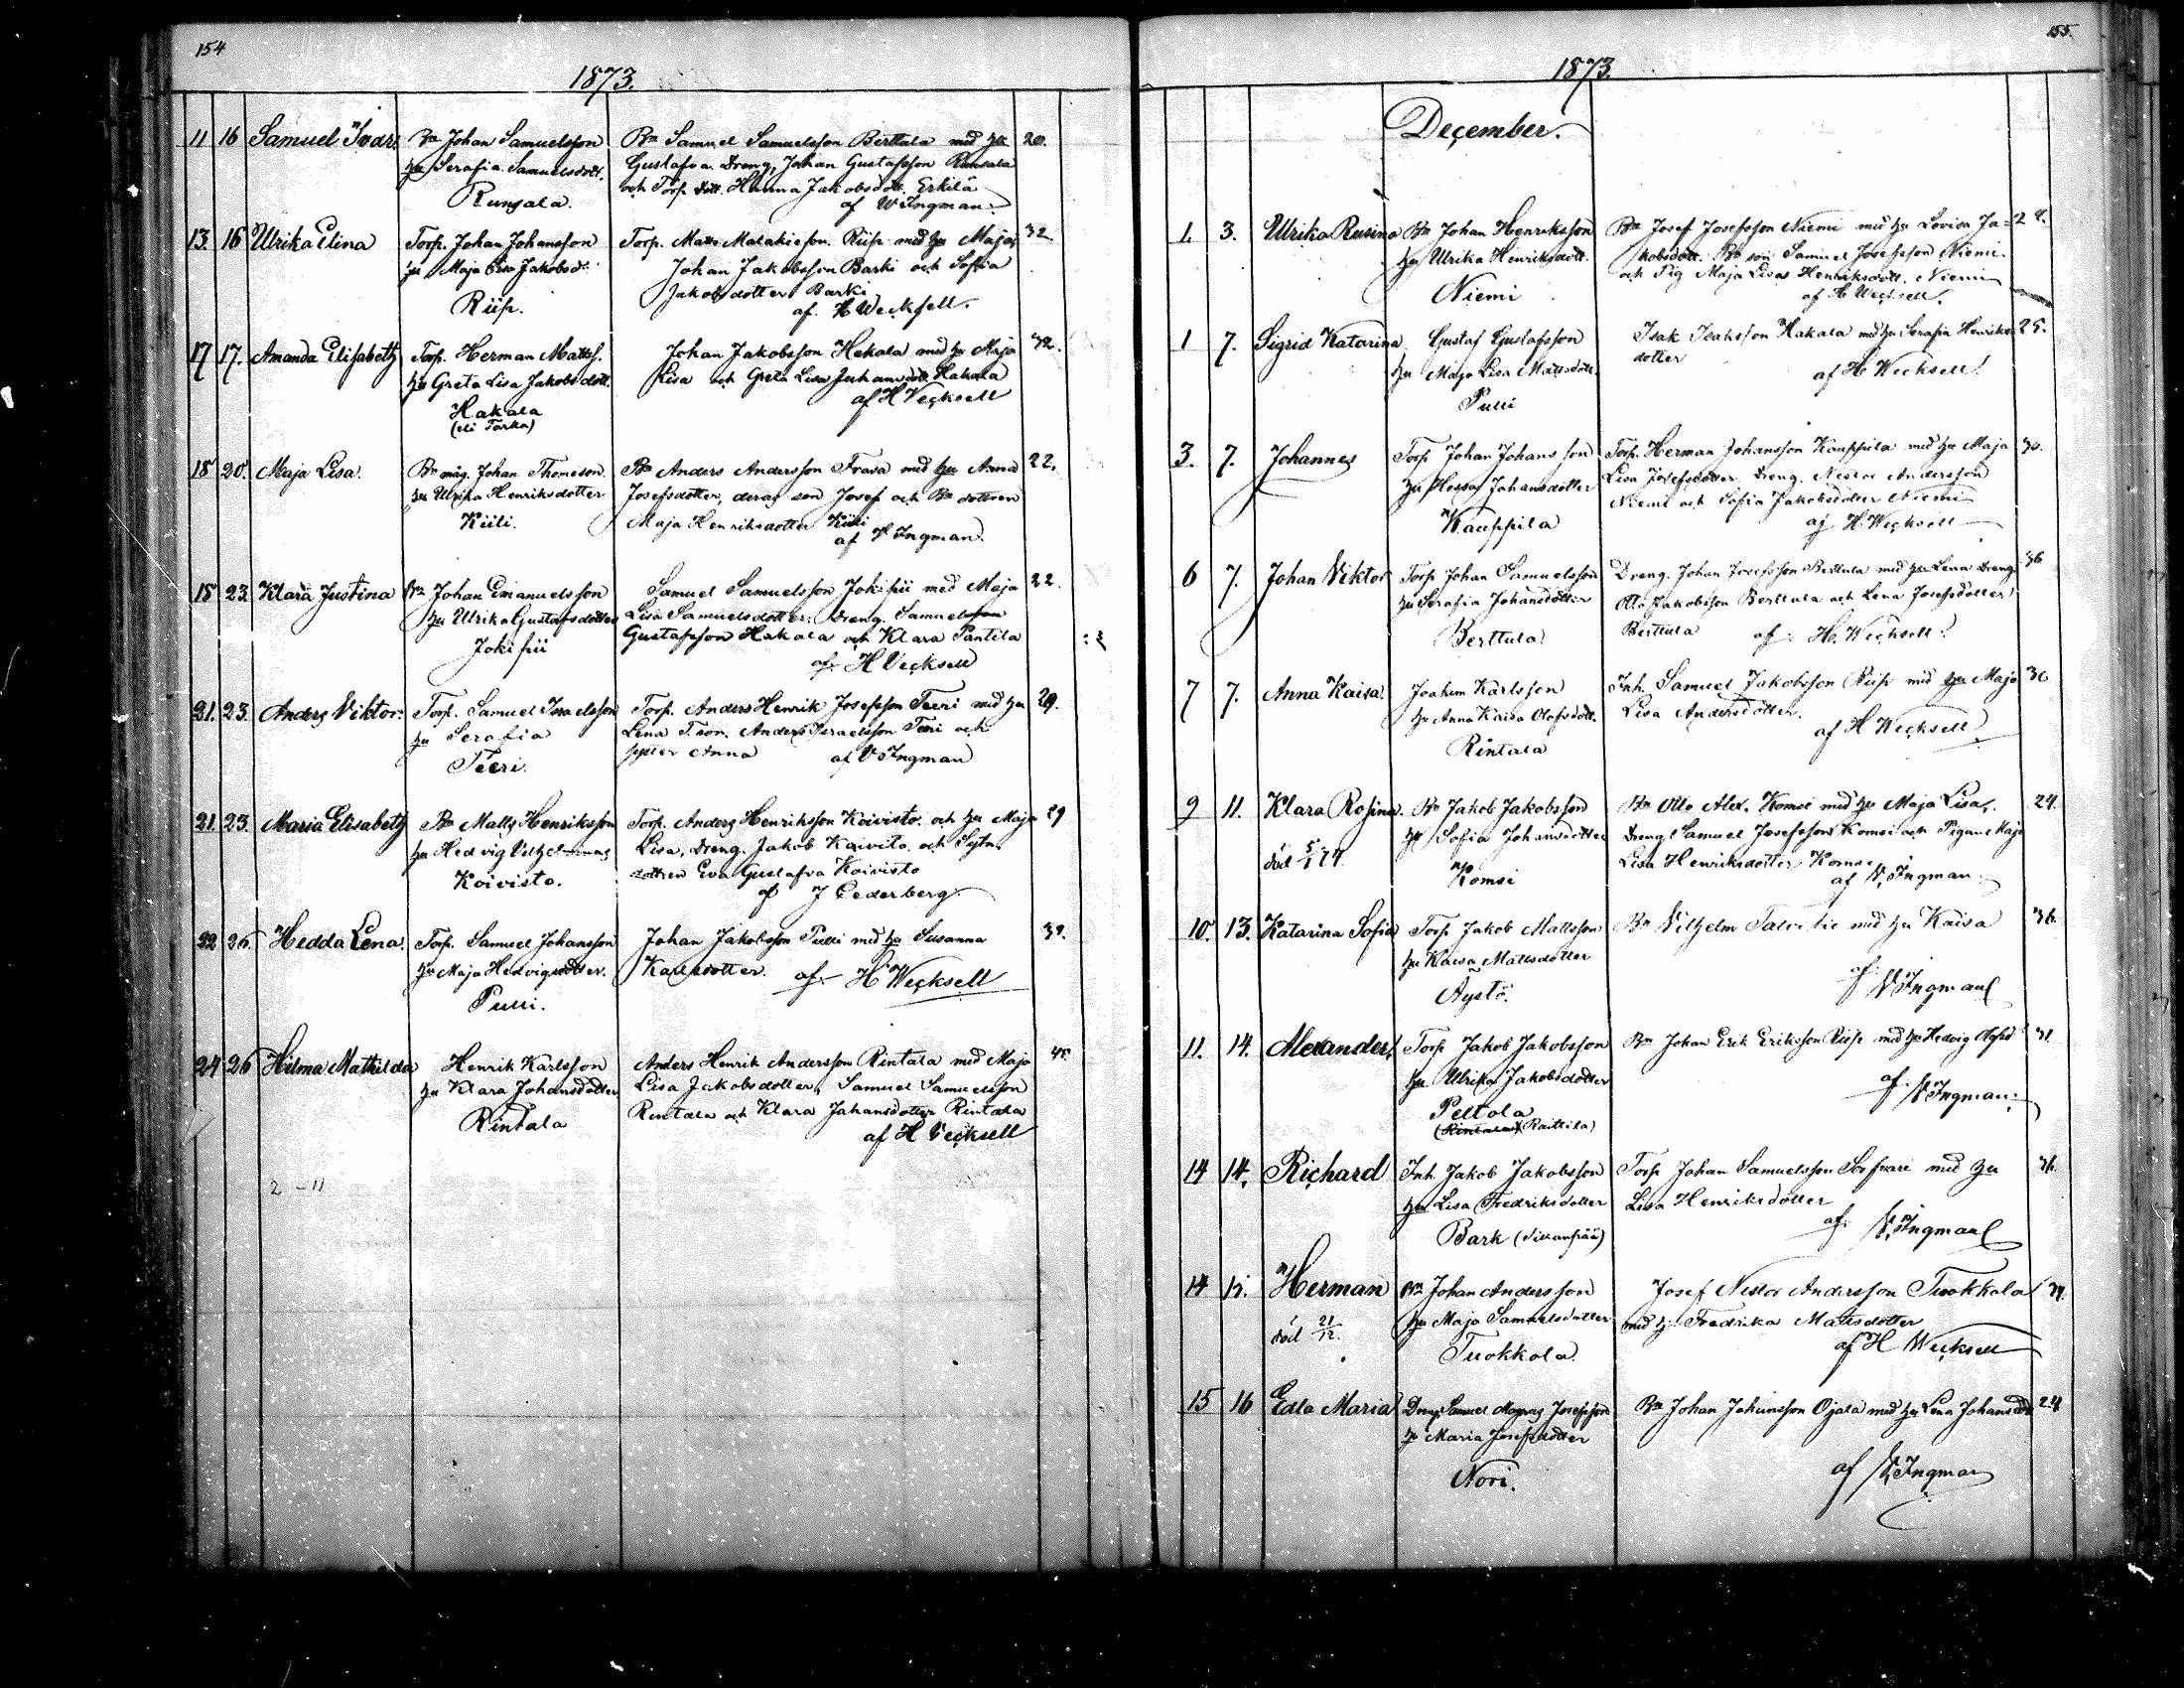 154
1873.
11 16 Samuel Ivar Bn Johan Samuelsson Bn Samuel Samuelsson Berttala med hu 20.
hu Serafia Samuelsdott. Gustafva. Dreng. Johan Gustafsson Runsala
och Torp. dott. Hanna Jakobsdott. Erkilä
Runsala. af W Ingman.
13. 16 Ulrika Elina Torp. Johan Johansson Torp. Matts Malakiesson Riip. med hu Maja, 32
hu Maja Lisa Jakobsd. Johan Jakobsson Barki och Sofia
Jakobsdotter Barki
Riip. af H Wecksell.
17 17. Amanda Elisabeth Torp. Herman Matts. Johan Jakobsson Hakala med hu Maja 32.
hu Greta Lisa Jakobsdott. Lisa och Greta Lisa Johansdott. Hakala
Hakala af H Wecksell
18 20. Maja Lisa. Bn måg. Johan Thomeson Bn Anders Andersson Frasa med hu Anna 22.
hu Ulrika Henriksdotter Josefsdotter, deras son Josef och Bn dottren
Kiili. Maja Henriksdotter Kiili
af Ingman.
18 23 Klara Justina Bn Johan Emanuelsson Samuel Samuelsson Jokipii med Maja 22.
hu Ulrika Gustafsdotter Lisa Samuelsdotter; Dreng. Samuel
Jokipii Gustafsson Hakala och Klara Pantila
af H Wecksell
21. 23. Anders Viktor. Torp. Samuel Israelsson Torp. Anders Henrik Josefsson Teeri med hu 29.
hu Serafia Lena T. son. Anders Israelsson Teeri och
Teeri. syster Anna af V Ingman
21. 23. Maria Elisabeth Bn Matts Henriksson Torp. Anders Henriksson Koivisto och hu Maja 29
hu Hedvig Vilhelmina Lisa, Dreng. Jakob Koivisto och Sytn.
Koivisto. dottren Eva Gustafva Koivisto
af J Cederberg
22 26. Hedda Lena. Torp. Samuel Johansson Johan Jakobsson Pulli med hu Susanna 32.
hu Maja Hedvigsdotter. Karlsdotter. af H Wecksell
Pulli.
24 26 Hilma Mathilda Henrik Karlsson Anders Henrik Andersson Rintala med Maja 45.
hu Klara Johansdotter Lisa Jakobsdotter, Samuel Samuelsson
Rintala Rintala och Klara Johansdotter Rintala
af H Wecksell
2 - 11
155.
1873.
December.
1. 3. Ulrika Rusina Bn Johan Henriksson Bn Josef Josefsson Niemi med hu Lovisa Ja=
hu Ulrika Henriksdott. kobsdott. Bn son Samuel Josefsson Niemi
Niemi och Pig Maja Lisa Henriksdott. Niemi
af H Wecksell.
1 7. Sigrid Katarina Gustaf Gustafsson Isak Isaksson Hakala med hu Serafia Henriks 25.
hu Maja Lisa Mattsdott. dotter
Pulli af H Wecksell.
3. 7. Johannes Torp Johan Johansson Torp. Herman Johansson Kauppila med hu Maja 30.
Johansdotter Lisa Josefsdotter. Dreng. Nestor Andersson
Kauppila Niemi och Sofia Jakobsdotter Niemi
af H. Wecksell
6 7. Johan Viktor Torp Johan Samuelsson Dreng. Johan Josefsson Berttula med hu Lena Dreng 36
hu Serafia Johansdotter Otto Jakobsson Berttula och Lena Josefsdotter
Berttula Berttula af H. Wecksell.
7 7. Anna Kaisa. Joakim Karlsson Inh. Samuel Jakobsson Riip med hu Maja 30
hu Anna Kaisa Olofsdott. Lisa Andersdotter.
Rintala af H Wecksell
9 11. Klara Rosina. Bn Jakob Jakobsson Bn Otto Alex. Komsi med hu Maja Lisa, 24.
hu Sofia Johansdotter Dreng Samuel Josefsson Komsi och Pigan Maja
död 5/1 74. Komsi Lisa Henriksdotter Komsi
af V. Ingman.
10. 13. Katarina Sofia Torp Jakob Mattsson Bn Vilhelm Talvitie med hu Kaisa 36.
hu Kaisa Mattsdotter
Äystö. af V Ingman
11. 14. Alexander, Torp Jakob Jakobsson Bn Johan Erik Eriksson Riip med hu Hedvig 31
hu Ulrika Jakobsdotter
Peltola af V Ingman.
(Rintala) (Raittila)
14 14. Richard Inh. Jakob Jakobsson Torp Johan Samuelsson Sorvari med hu 36.
hu Lisa Fredriksdotter Lisa Henriksdotter
Bark af V. Ingman
14 15. Herman Bn Johan Andersson Josef Nestor Andersson Tuokkola
hu Maja Samuelsdotter med hu Fredrika Mattsdotter
död 21/12. Tuokkola. af H Wecksell
15 16 Edla Maria Dreng. Samuel Magnus Josefsson Bn Johan Johansson Ojala med hu Lena Johansdott 24
hu Maria Josefsdotter
Nori. af V. Ingman